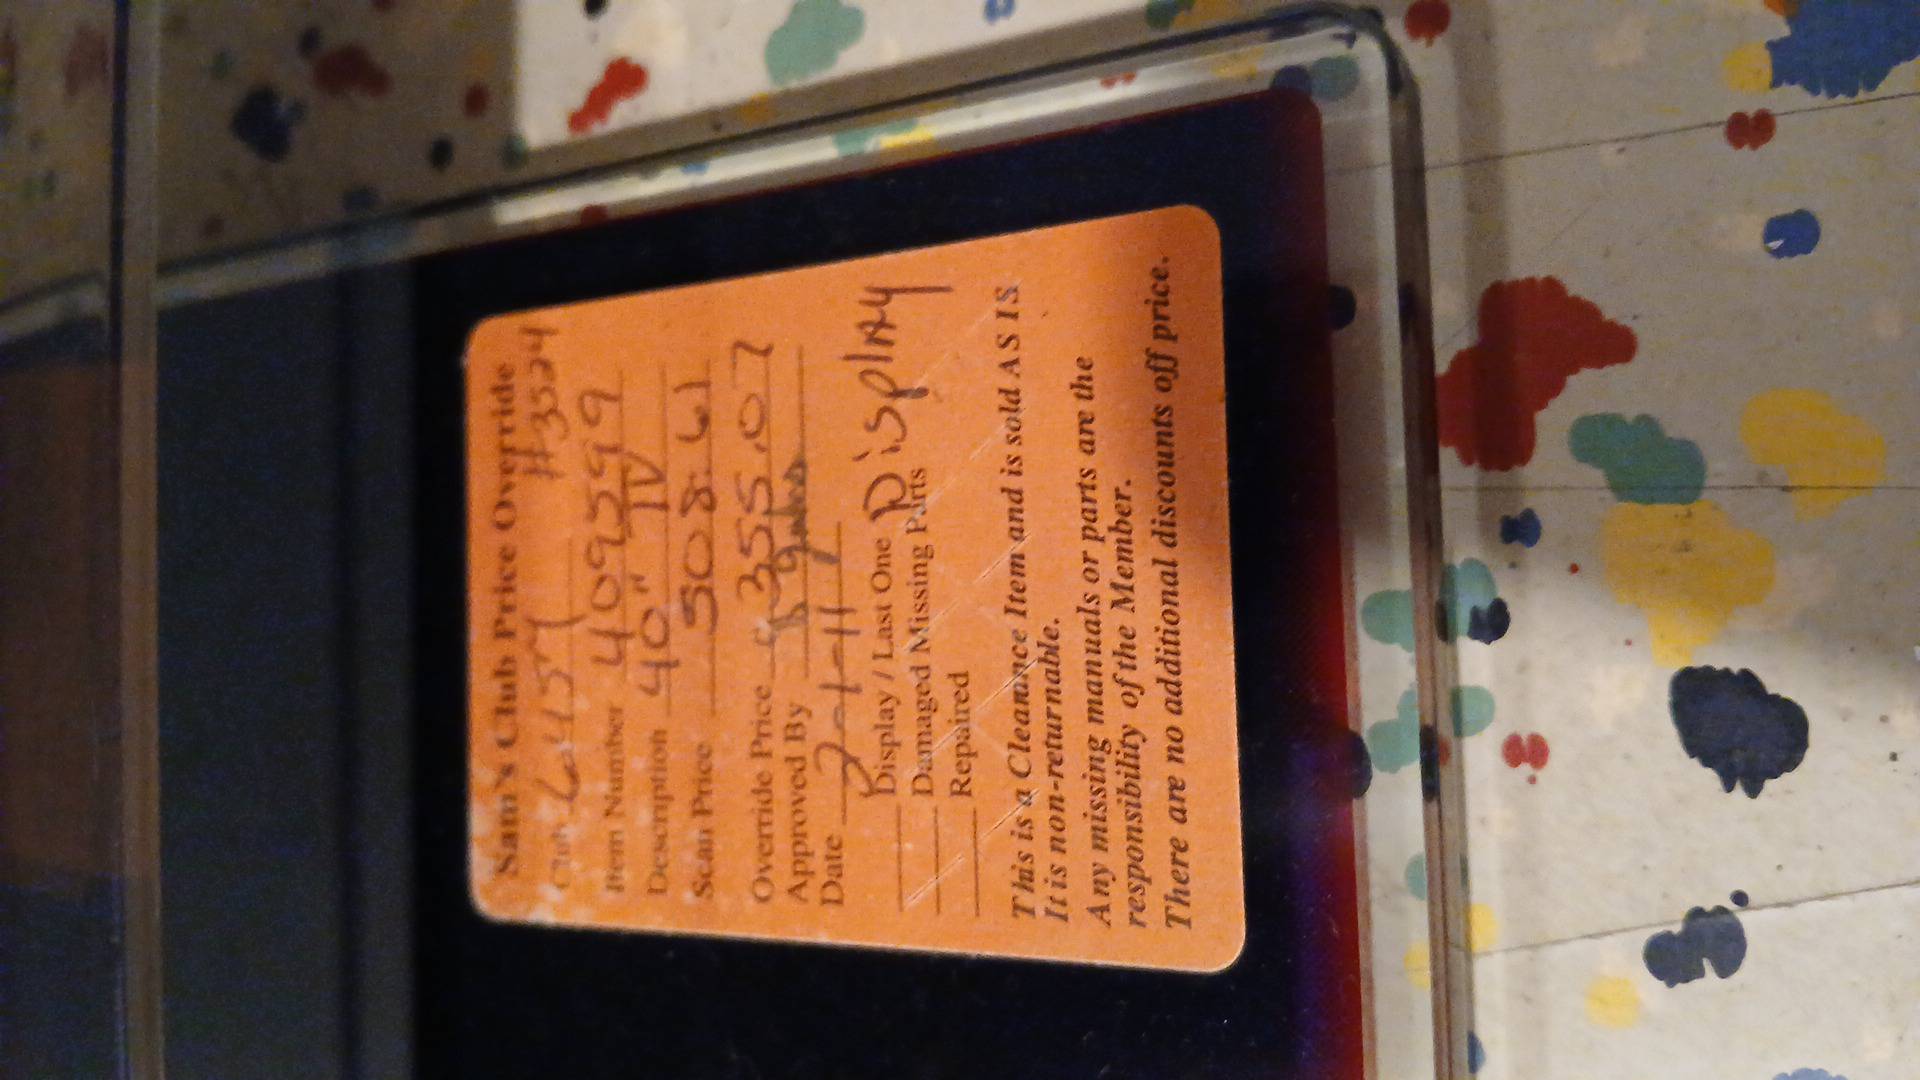 Sam's Club Price Override
Club 6457 #3524
Item Number 409599
Description 40" TV
Scan Price 508.61
Override Price 355.07
Approved By
Date 2-1-11
Display / Last One Display
Damaged Missing Parts
Repaired
This is a Clearance Item and is sold AS IS
It is non-returnable.
Any missing manuals or parts are the
responsibility of the Member.
There are no additional discounts off price.